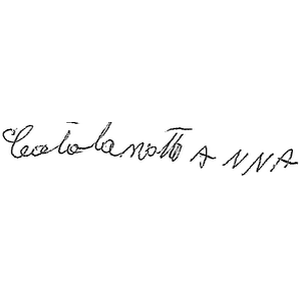 Catalanotto ANNA